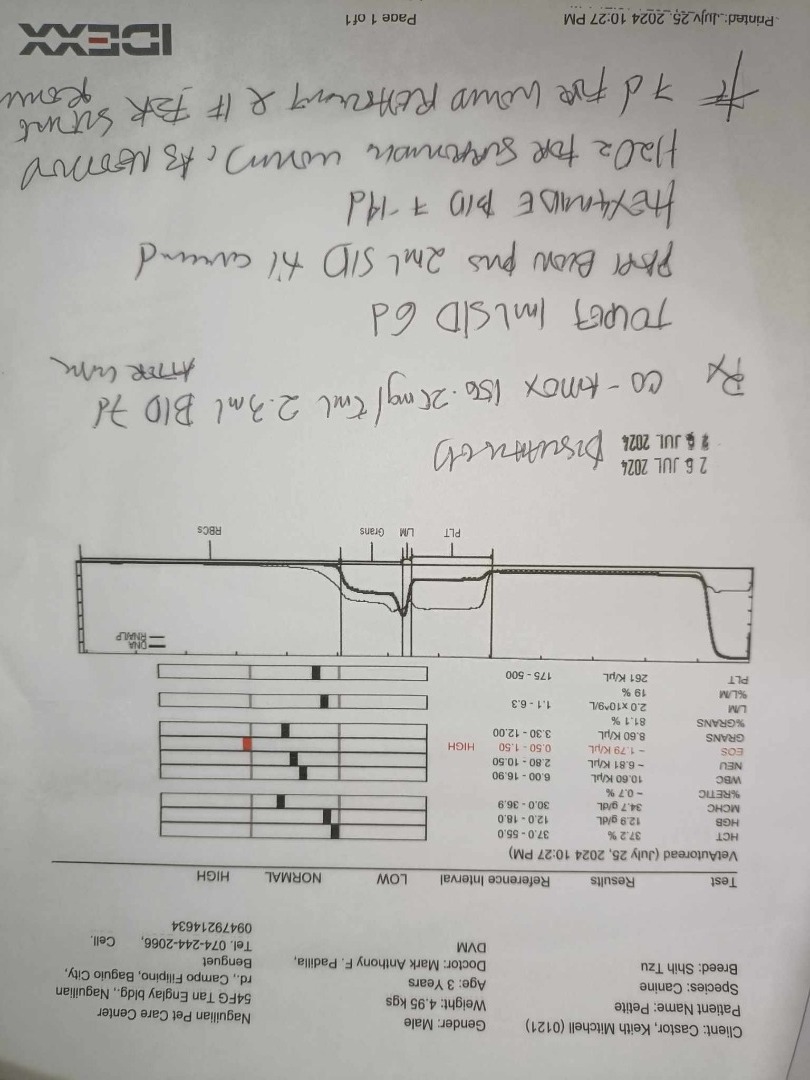 Client: Castor, Keith Mitchell (0121)
Patient Name: Petite
Species: Canine
Breed: Shih Tzu
Gender: Male
Weight: 4.95 kgs
Age: 3 Years
Doctor: Mark Anthony F. Padilla,
DVM
Naguilian Pet Care Center
54FG Tan Englay bldg., Naguilian
rd., Campo Filipino, Baguio City,
Benguet
Tel. 074-244-2066, Cell.
09479214634
Test Results Reference Interval LOW NORMAL HIGH
VetAutoread (July 25, 2024 10:27 PM)
HCT 37.2 % 37.0 - 55.0
HGB 12.9 g/dL 12.0 - 18.0
MCHC 34.7 g/dL 30.0 - 36.9
%RETIC ~ 0.7 %
WBC 10.60 K/µL 6.00 - 16.90
NEU ~ 6.81 K/µL 2.80 - 10.50
EOS ~ 1.79 K/µL 0.50 - 1.50 HIGH
GRANS 8.60 K/µL 3.30 - 12.00
%GRANS 81.1 %
L/M 2.0 x10^9/L 1.1 - 6.3
%L/M 19 %
PLT 261 K/µL 175 - 500
DNA
RNA/LP
PLT L/M Grans RBCs
26 JUL 2024
26 JUL 2024
Rx CO-AMOX 156.25mg/5mL 2.3mL BID 7d
1mL SID 6d
2mL SID
BID 7-14d
H2O2 FOR AS NEEDED
7d FOR WOUND & IF FOR
Printed: July 25, 2024 10:27 PM
Page 1 of 1
IDEXX